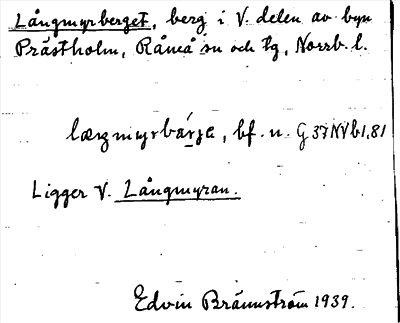 Långmyrberget, berg i V. delen av byn
Prästholm, Råneå sn och tg, Norrb. l.
lœŋmyrbárjɛ, bf. n. G 37NVb1,81
Ligger V. Långmyran.
Edvin Brännström 1939.